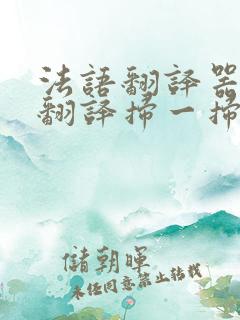 法語翻譯器
翻譯掃一掃
儲朝暉
未经同意禁止转载